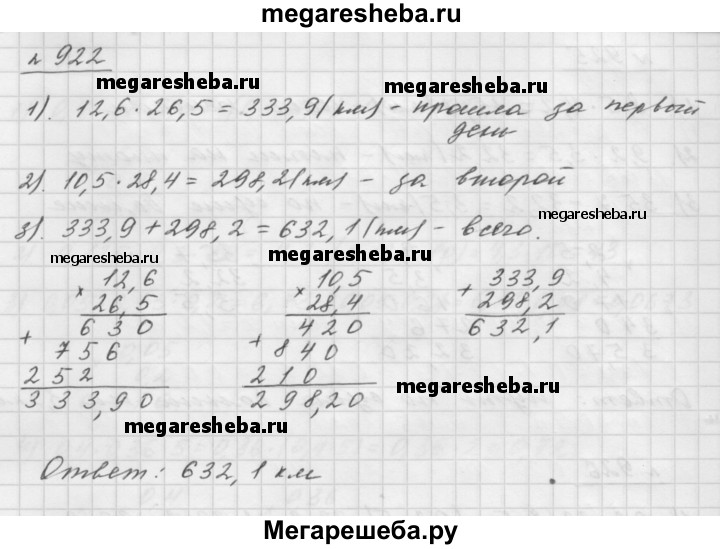 megaresheba.ru
№ 922
megaresheba.ru
1). 12,6 · 26,5 = 333,9 (км) - прошла за первый
день
megaresheba.ru
2). 10,5 · 28,4 = 298,2 (км) - за второй
megaresheba.ru
3). 333,9 + 298,2 = 632,1 (км) - всего.
megaresheba.ru
× 12,6
26,5
+ 630
756
252
333,90
× 10,5
28,4
+ 420
840
210
298,20
+ 333,9
298,2
632,1
megaresheba.ru
megaresheba.ru
Ответ: 632,1 км
Мегарешеба.ру